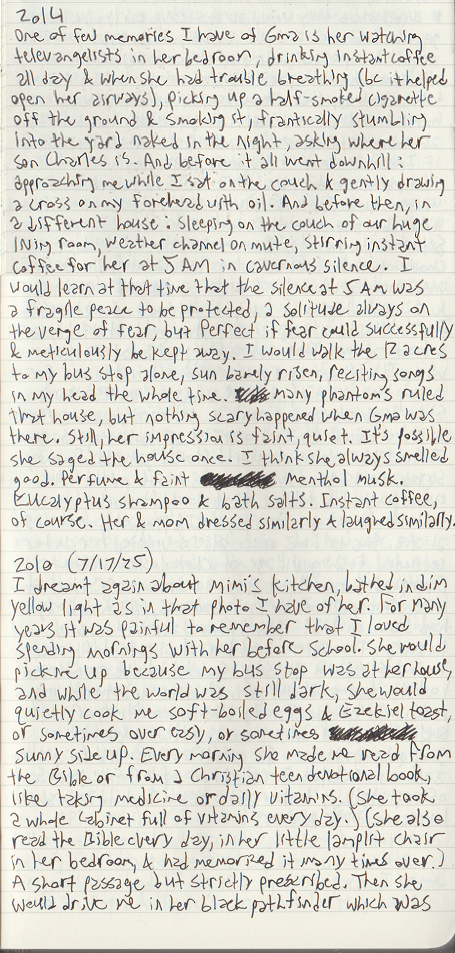 2014
One of few memories I have of Gma is her watching
televangelists in her bedroom, drinking instant coffee
all day & when she had trouble breathing (bc it helped
open her airways), picking up a half-smoked cigarette
off the ground & smoking it, frantically stumbling
into the yard naked in the night, asking where her
son Charles is. And before it all went downhill:
approaching me while I sat on the couch & gently drawing
a cross on my forehead with oil. And before then, in
a different house: sleeping on the couch of our huge
living room, weather channel on mute, stirring instant
coffee for her at 5 AM in cavernous silence. I
would learn at that time that the silence at 5 AM was
a fragile peace to be protected, a solitude always on
the verge of fear, but perfect if fear could successfully
& meticulously be kept away. I would walk the 12 acres
to my bus stop alone, sun barely risen, reciting songs
in my head the whole time. many phantoms ruled
that house, but nothing scary happened when Gma was
there. Still, her impression is faint, quiet. It's possible
she saged the house once. I think she always smelled
good. Perfume & faint menthol musk.
Eucalyptus shampoo & bath salts. Instant coffee,
of course. Her & mom dressed similarly & laughed similarly.
2010 (7/17/25)
I dreamt again about Mimi's kitchen, bathed in dim
yellow light as in that photo I have of her. For many
years it was painful to remember that I loved
spending mornings with her before school. She would
pick me up because my bus stop was at her house,
and while the world was still dark, she would
quietly cook me soft-boiled eggs & Ezekiel toast,
or sometimes over easy, or sometimes
sunny side up. Every morning she made me read from
the Bible or from a Christian teen devotional book,
like taking medicine or daily vitamins. (She took
a whole cabinet full of vitamins every day.) (She also
read the Bible every day, in her little lamplit chair
in her bedroom, & had memorized it many times over.)
A short passage but strictly prescribed. Then she
would drive me in her black pathfinder which was